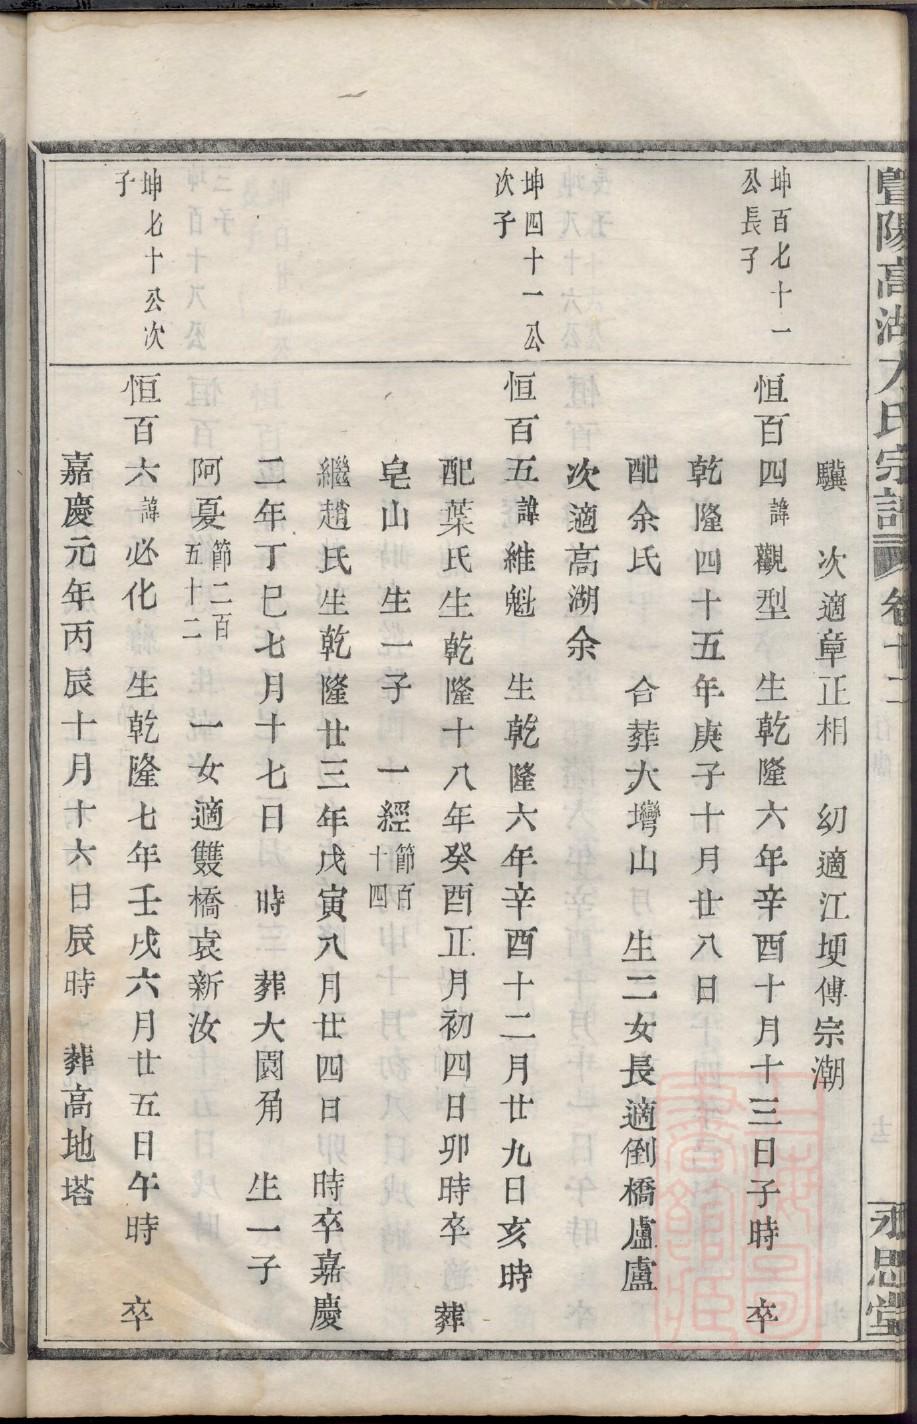 暨陽高湖方氏宗譜 卷十二 永思堂
驥 次適章正相 幼適江埂傅宗潮
坤百七十一
公長子
恒百四諱觀型 生乾隆六年辛酉十月十三日子時 卒
乾隆四十五年庚子十月廿八日
配余氏 合葬大塆山 生二女長適倒橋盧盧
次適高湖余
坤四十一公
次子
恒百五諱維魁 生乾隆六年辛酉十二月廿九日亥時
配葉氏生乾隆十八年癸酉正月初四日卯時卒 葬
皂山生一子 一經節百十四
繼趙氏生乾隆廿三年戊寅八月廿四日卯時卒嘉慶
二年丁巳七月十七日 時 葬大園角 生一子
阿夏節二百五十二 一女適雙橋袁新汝
坤七十公次
子
恒百六諱必化 生乾隆七年壬戌六月廿五日午時 卒
嘉慶元年丙辰十月十六日辰時 葬高地塔